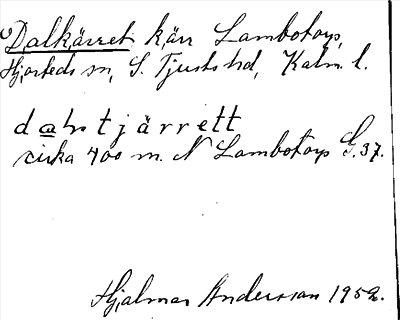 Dalkärret kärr Lambotorp,
Hjorteds sn, S. Tjusts hd, Kalm. l.
dalstjärrett
cirka 400 m. N Lambotorp G.37.
Hjalmar Andersson 1952.